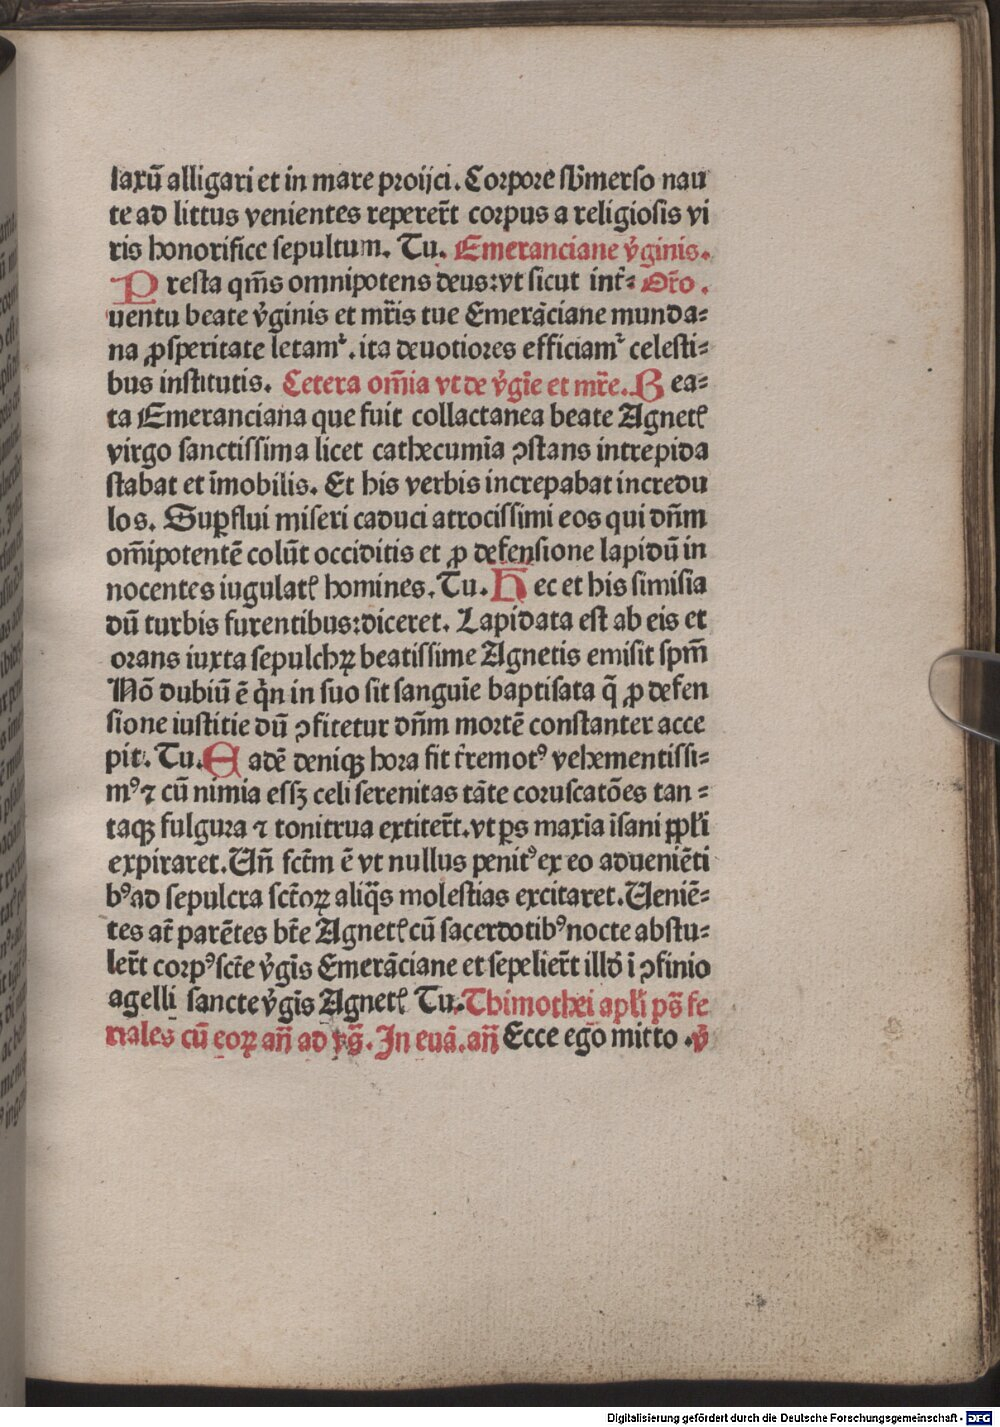 laxū alligari et in mare proijci. Corpore sb̄merso nau
te ad littus venientes reperer̄t corpus a religiosis vi
ris honorifice sepultum. Tu. Emeranciane v̄ginis.
Presta qm̄s omnipotens deus: vt sicut int̄⸗ Or̄o.
uentu beate v̄ginis et mr̄is tue Emerāciane munda⸗
na ꝓsperitate letamᷣ. ita deuotiores efficiamᷣ celesti⸗
bus institutis. Cetera om̄ia vt de v̄gīe et mr̄e. Bea⸗
ta Emeranciana que fuit collactanea beate Agnetꝭ
virgo sanctissima licet cathecumīa ꝯstans intrepida
stabat et īmobilis. Et his verbis increpabat incredu
los. Suꝑflui miseri caduci atrocissimi eos qui dn̄m
om̄ipotentē colūt occiditis et ꝓ defensione lapidū in
nocentes iugulatꝭ homines. Tu. Hec et his simisia
dū turbis furentibus: diceret. Lapidata est ab eis et
orans iuxta sepulchꝝ beatissime Agnetis emisit spm̄
Nō dubiū ē q̄n in suo sit sanguīe baptisata q̄ ꝓ defen
sione iustitie dū ꝯfitetur dn̄m mortē constanter acce
pit. Tu. Eadē deniqꝫ hora fit t̄remotꝰ vehementissi⸗
mꝰ ⁊ cū nimia essꝫ celi serenitas tāte coruscatōes tan⸗
taqꝫ fulgura ⁊ tonitrua extiter̄t. vt ps̄ maxīa īsani ppl̄i
expiraret. Un̄ fct̄m ē vt nullus penitꝰ ex eo aduenieēti
bꝰ ad sepulcra sct̄oꝝ aliq̄s molestias excitaret. Ueniē⸗
tes at̄ parētes bt̄e Agnetꝭ cū sacerdotibꝰ nocte abstu⸗
ler̄t corpꝰ sct̄e v̄gīs Emerāciane et sepelier̄t illd̄ ī ꝯfinio
agelli sancte v̄gīs Agnetꝭ Tu. Thimothei apl̄i ps̄ fe
riales cū eoꝝ an̄ ad v̄g̃. In euā. an̄ Ecce ego mitto. v̄
Digitalisierung gefördert durch die Deutsche Forschungsgemeinschaft - DFG